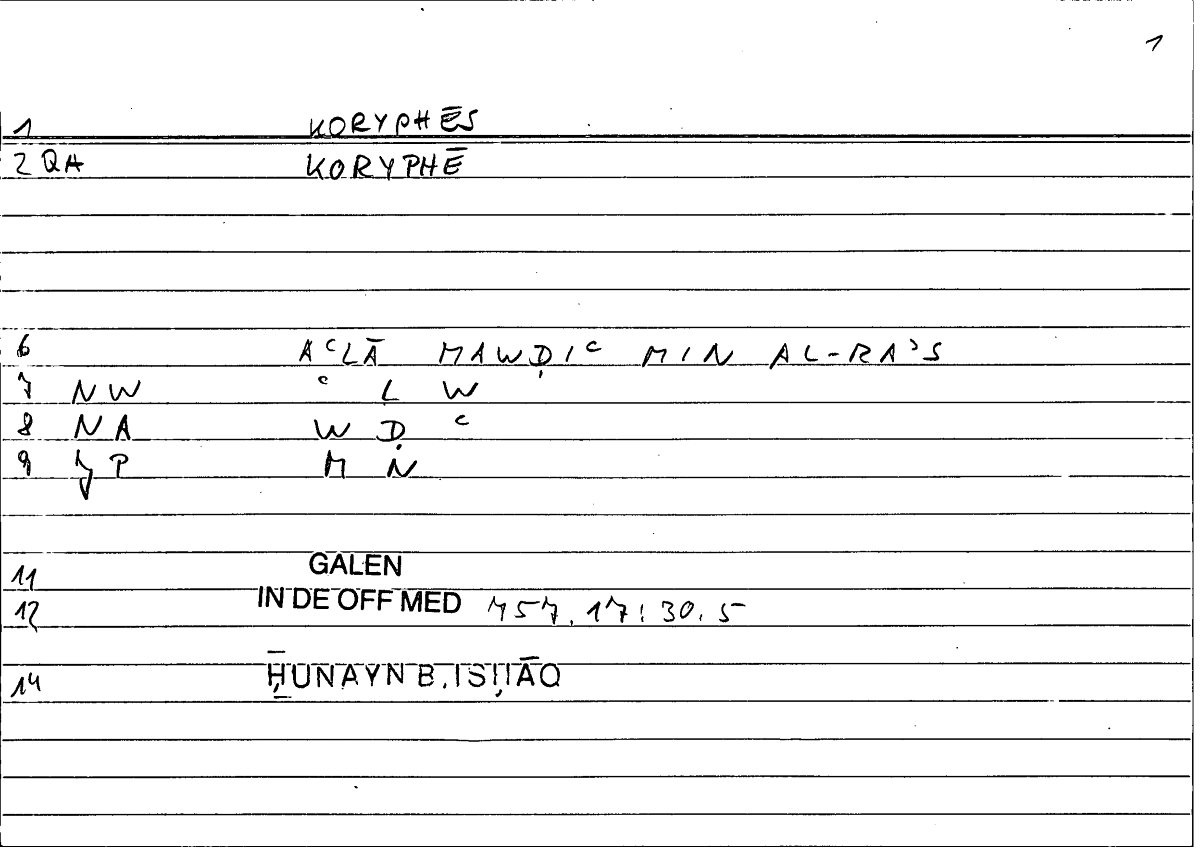 1
1 KORYPHĒS
2 QA KORYPHĒ
6 AʿLĀ MAWḌIʿ MIN AL-RAʾS
7 NW ʿ L W
8 NA W Ḍ ʿ
9 JP M N
11 GALEN
12 IN DE OFF MED 757.17:30.5
14 ḤUNAYN B. ISḤĀQ